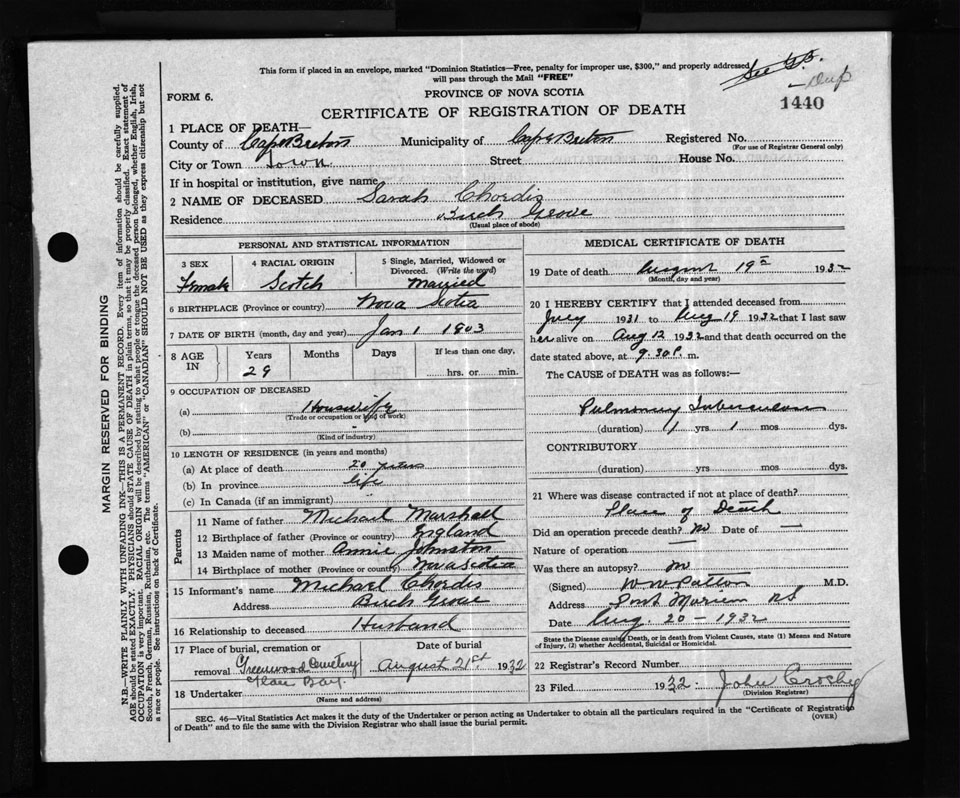 This form if placed in an envelope, marked "Dominion Statistics—Free, penalty for improper use, $300," and properly addressed
will pass through the Mail "FREE"
See G.B.
Dup
1440
FORM 6.
PROVINCE OF NOVA SCOTIA
CERTIFICATE OF REGISTRATION OF DEATH
1 PLACE OF DEATH—
County of Cape Breton Municipality of Cape Breton Registered No.
(For use of Registrar General only)
City or Town Town Street House No.
If in hospital or institution, give name
2 NAME OF DECEASED Sarah Chordis
Residence Birch Grove
(Usual place of abode)
PERSONAL AND STATISTICAL INFORMATION
3 SEX Female
4 RACIAL ORIGIN Scotch
5 Single, Married, Widowed or Divorced. (Write the word) Married
6 BIRTHPLACE (Province or country) Nova Scotia
7 DATE OF BIRTH (month, day and year) Jan 1 1903
8 AGE IN Years 29 Months Days If less than one day, hrs. or min.
9 OCCUPATION OF DECEASED
(a) Housewife
(Trade or occupation or kind of work)
(b)
(Kind of industry)
10 LENGTH OF RESIDENCE (in years and months)
(a) At place of death 20 years
(b) In province life
(c) In Canada (if an immigrant)
Parents
11 Name of father Michael Marshall
12 Birthplace of father (Province or country) England
13 Maiden name of mother Annie Johnston
14 Birthplace of mother (Province or country) Nova Scotia
15 Informant's name Michael Chordis
Address Birch Grove
16 Relationship to deceased Husband
17 Place of burial, cremation or removal Greenwood Cemetery Glace Bay.
Date of burial August 21st 1932
18 Undertaker
(Name and address)
MEDICAL CERTIFICATE OF DEATH
19 Date of death August 19th 1932
(Month, day and year)
20 I HEREBY CERTIFY that I attended deceased from
July 1931 to Aug 19 1932 that I last saw
her alive on Aug 12 1932 and that death occurred on the
date stated above, at 9.30 P. m.
The CAUSE OF DEATH was as follows:—
Pulmonary Tuberculosis
(duration) 1 yrs 1 mos dys.
CONTRIBUTORY
(duration) yrs mos dys.
21 Where was disease contracted if not at place of death?
Place of Death
Did an operation precede death? No Date of —
Nature of operation —
Was there an autopsy? No
(Signed) W W Patton M.D.
Address Port Morien N.S
Date Aug. 20 - 1932
State the Disease causing Death, or in death from Violent Causes, state (1) Means and Nature
of Injury, (2) whether Accidental, Suicidal or Homicidal.
22 Registrar's Record Number
23 Filed 1932 John Crosby
(Division Registrar)
SEC. 46—Vital Statistics Act makes it the duty of the Undertaker or person acting as Undertaker to obtain all the particulars required in the "Certificate of Registration
of Death" and to file the same with the Division Registrar who shall issue the burial permit.
(OVER)
MARGIN RESERVED FOR BINDING
N.B.—WRITE PLAINLY WITH UNFADING INK—THIS IS A PERMANENT RECORD. Every item of information should be carefully supplied.
AGE should be stated EXACTLY. PHYSICIANS should STATE CAUSE OF DEATH in plain terms, so that it may be properly classified. Exact statement of
OCCUPATION is very important. RACIAL ORIGIN will be described by stating to what people or tongue the deceased person belonged, whether English, Irish,
Scotch, French, German, Russian, Ruthenian, etc. The terms "AMERICAN" or "CANADIAN" SHOULD NOT BE USED as they express citizenship but not
a race or people. See instructions on back of Certificate.